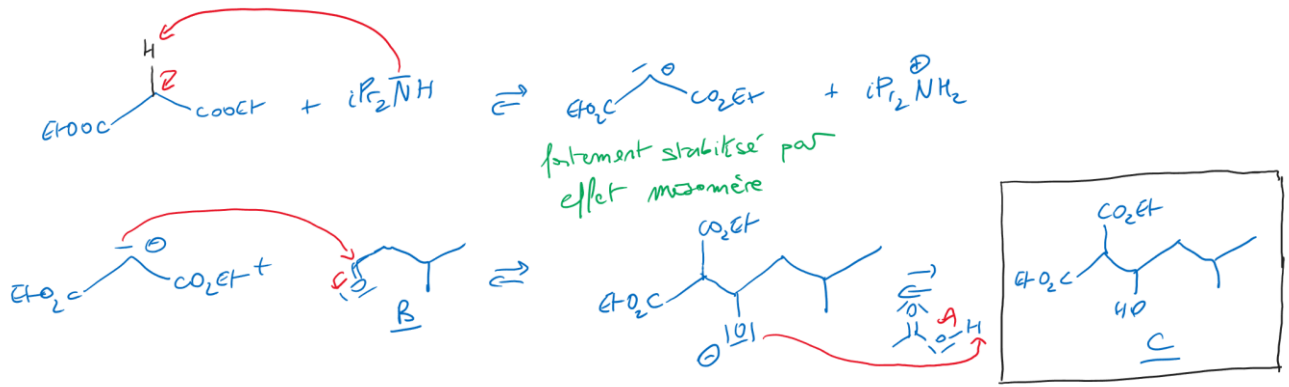 H
EtOOC COOEt + iPr₂NH ⇌ EtO₂C ⊖ CO₂Et + iPr₂NH₂ ⊕
fortement stabilisé par
effet mésomère
EtO₂C ⊖ CO₂Et + O B ⇌ EtO₂C CO₂Et |O| ⊖ ⇌ O O H EtO₂C CO₂Et HO C